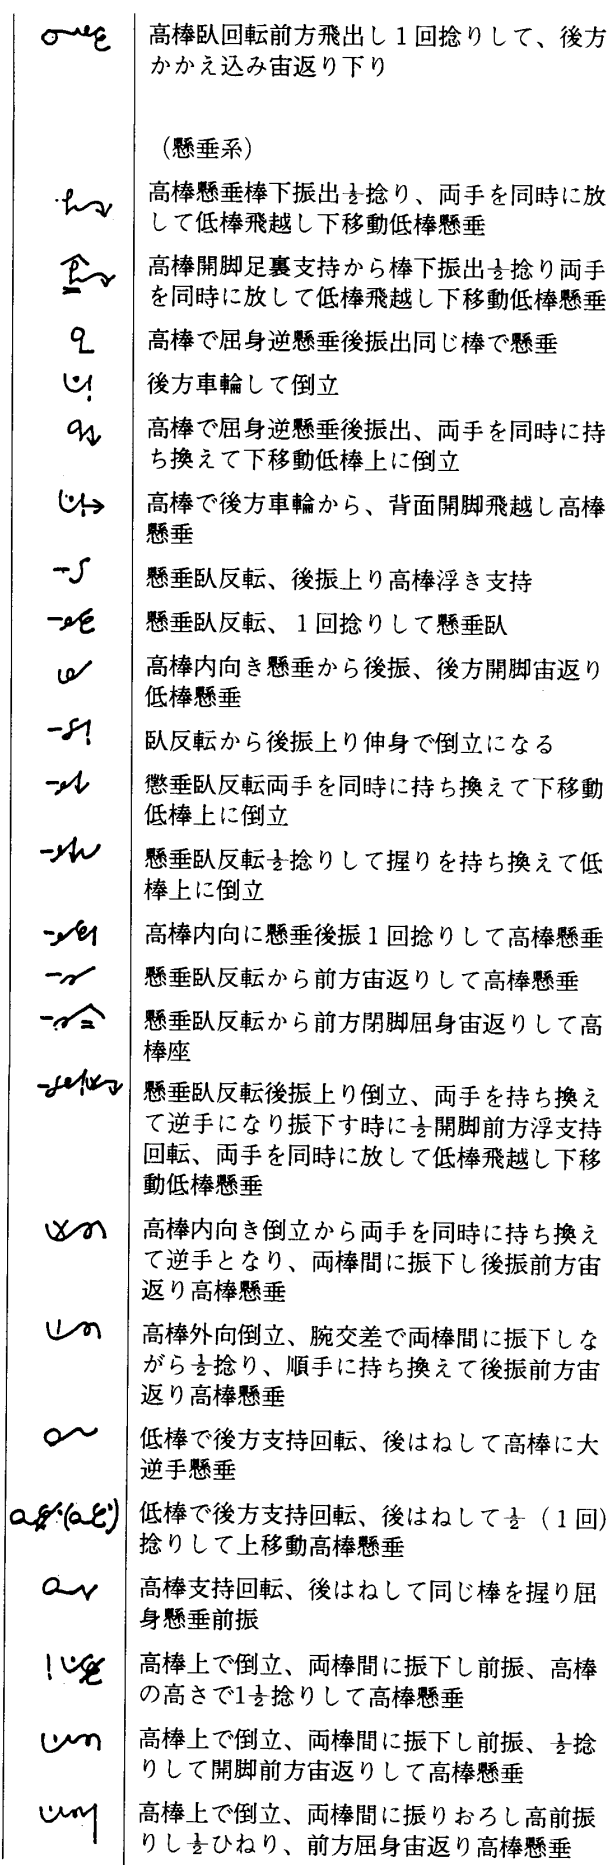 高棒臥回転前方飛出し1回捻りして、後方
かかえ込み宙返り下り
（懸垂系）
高棒懸垂棒下振出½捻り、両手を同時に放
して低棒飛越し下移動低棒懸垂
高棒開脚足裏支持から棒下振出½捻り両手
を同時に放して低棒飛越し下移動低棒懸垂
高棒で屈身逆懸垂後振出同じ棒で懸垂
後方車輪して倒立
高棒で屈身逆懸垂後振出、両手を同時に持
ち換えて下移動低棒上に倒立
高棒で後方車輪から、背面開脚飛越し高棒
懸垂
懸垂臥反転、後振上り高棒浮き支持
懸垂臥反転、1回捻りして懸垂臥
高棒内向き懸垂から後振、後方開脚宙返り
低棒懸垂
臥反転から後振上り伸身で倒立になる
懲垂臥反転両手を同時に持ち換えて下移動
低棒上に倒立
懸垂臥反転½捻りして握りを持ち換えて低
棒上に倒立
高棒内向に懸垂後振1回捻りして高棒懸垂
懸垂臥反転から前方宙返りして高棒懸垂
懸垂臥反転から前方閉脚屈身宙返りして高
棒座
懸垂臥反転後振上り倒立、両手を持ち換え
て逆手になり振下す時に½開脚前方浮支持
回転、両手を同時に放して低棒飛越し下移
動低棒懸垂
高棒内向き倒立から両手を同時に持ち換え
て逆手となり、両棒間に振下し後振前方宙
返り高棒懸垂
高棒外向倒立、腕交差で両棒間に振下しな
がら½捻り、順手に持ち換えて後振前方宙
返り高棒懸垂
低棒で後方支持回転、後はねして高棒に大
逆手懸垂
低棒で後方支持回転、後はねして½（1回）
捻りして上移動高棒懸垂
高棒支持回転、後はねして同じ棒を握り屈
身懸垂前振
高棒上で倒立、両棒間に振下し前振、高棒
の高さで1½捻りして高棒懸垂
高棒上で倒立、両棒間に振下し前振、½捻
りして開脚前方宙返りして高棒懸垂
高棒上で倒立、両棒間に振りおろし高前振
りし½ひねり、前方屈身宙返り高棒懸垂